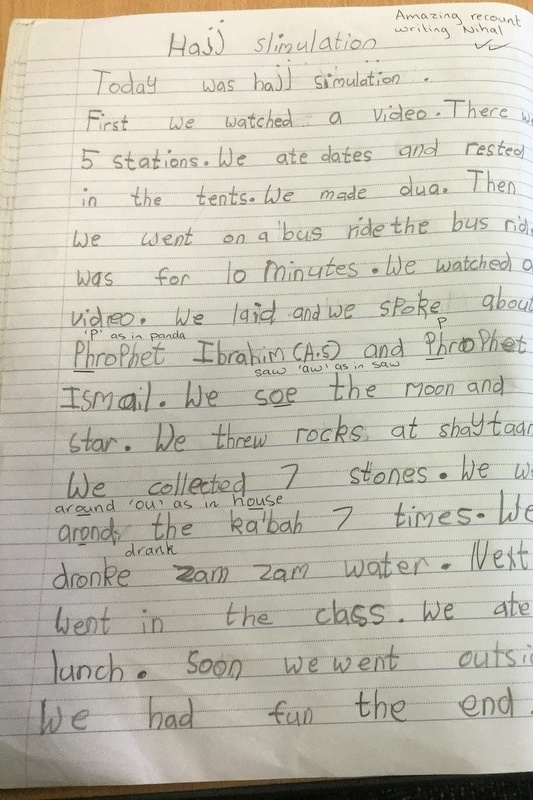 Amazing recount
writing Nihal
Hajj slimulation
Today was hajj simulation.
First we watched a video. There
5 stations. We ate dates and rested
in the tents. We made dua. Then
We went on a bus ride the bus
was for 10 minutes. We watched
video. We laid and we spoke about
'P' as in panda
P
Phrophet Ibrahim (A.S) and Phrophet
saw 'aw' as in saw
Ismail. We soe the moon and
star. We threw rocks at shaytaan
We collected 7 stones. We
around 'ou' as in house
arond, the ka'bah 7 times. We
drank
dronke zam zam water. Next
went in the class. We ate
lunch. Soon we went
We had fun the end.